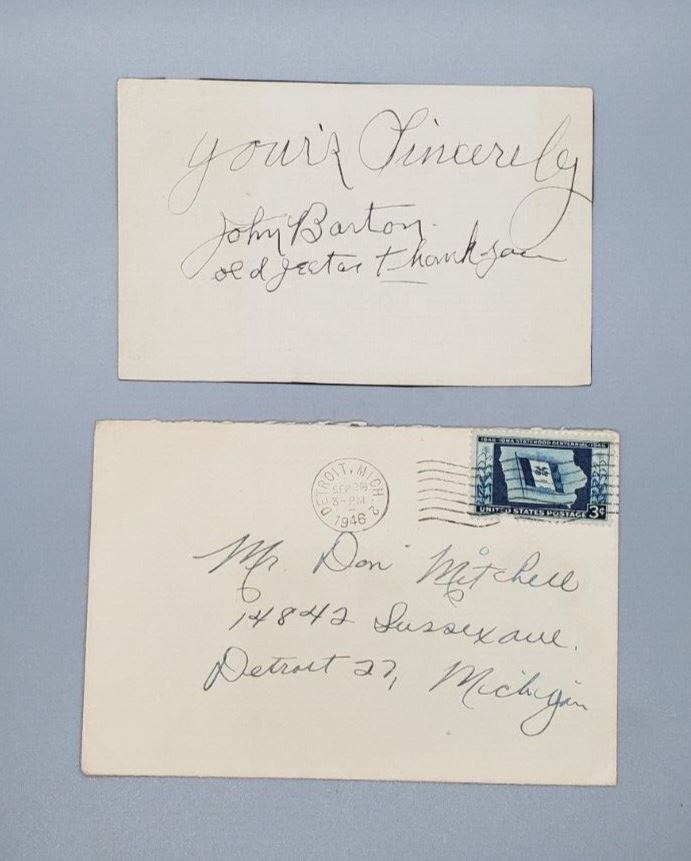 your's Sincerely
John Barton
old jeeter thank you
DETROIT, MICH. 2
SEP 28
3-PM
1946
1846 · IOWA STATEHOOD CENTENNIAL · 1946
UNITED STATES POSTAGE 3¢
Mr. Don Mitchell
14842 Sussex ave.
Detroit 27, Michigan